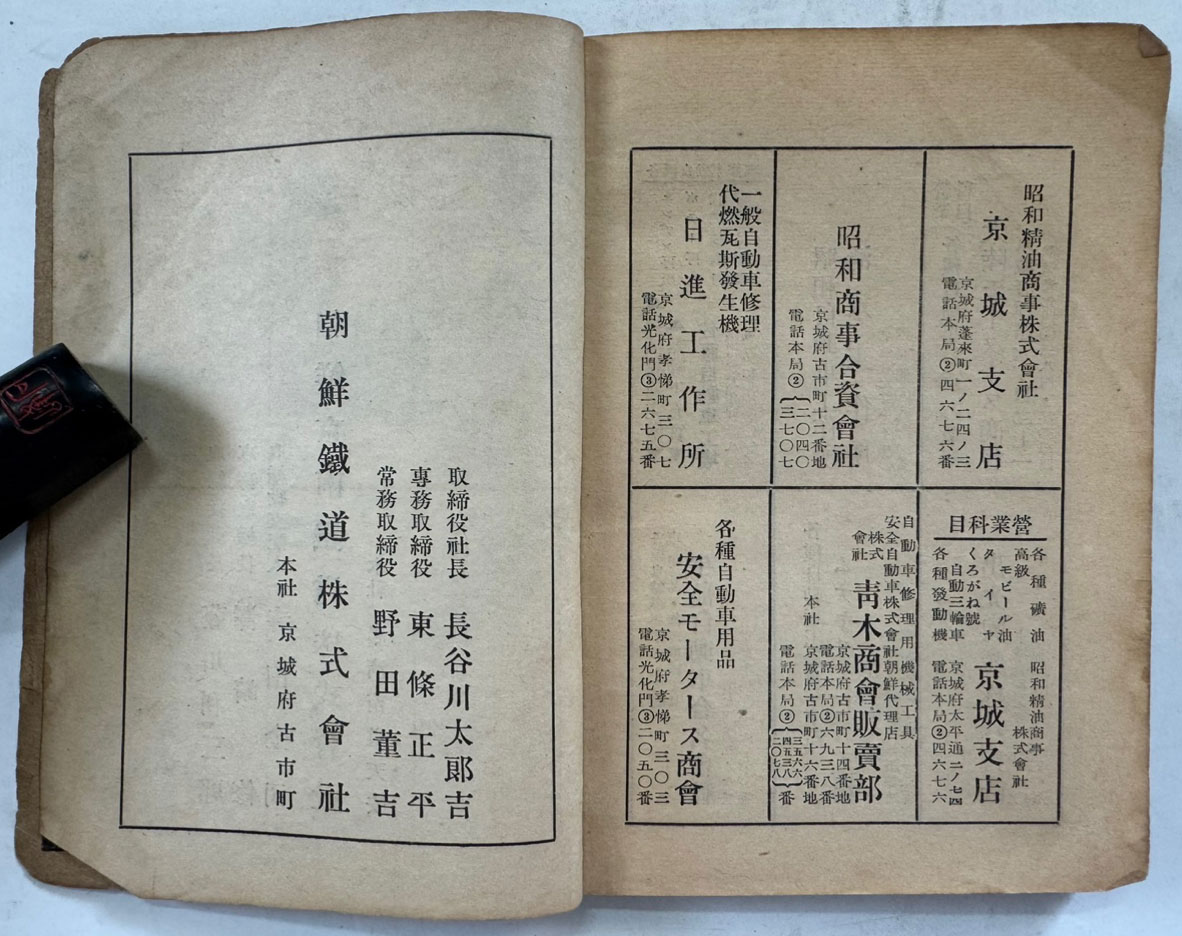 昭和精油商事株式會社
京城支店
京城府蓬來町一ノ二四ノ三
電話本局②四六七六番
昭和商事合資會社
京城府古市町十二番地
電話本局②{二〇四〇
三七〇七
一般自動車修理
代燃瓦斯發生機
日進工作所
京城府孝悌町三〇七
電話光化門③二六七五番
營業科目
各種礦油
高級モビール油
タイヤ
くろがね號
自動三輪車
各種發動機
昭和精油商事
株式會社
京城支店
京城府太平通二ノ七四
電話本局②四六七六
自動車修理用機械工具
安全自動車株式會社朝鮮代理店
株式會社
靑木商會販賣部
京城府古市町十四番地
電話本局②六九三八番
本社
京城府古市町十六番地
電話本局②
番
各種自動車用品
安全モータース商會
京城府孝悌町三〇三
電話光化門③二〇五〇番
取締役社長 長谷川太郞吉
專務取締役 東條正平
常務取締役 野田董吉
朝鮮鐵道株式會社
本社 京城府古市町